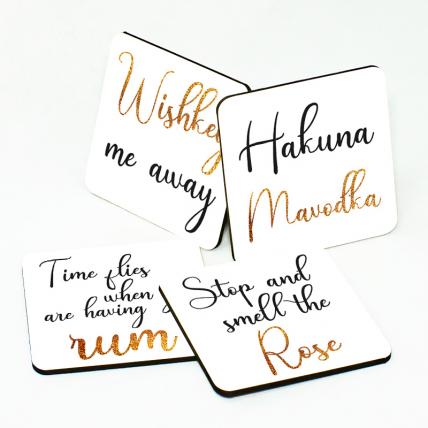 Wishkey
me away
Hakuna
Mavodka
Time flies
when
are having
rum
Stop and
smell the
Rose